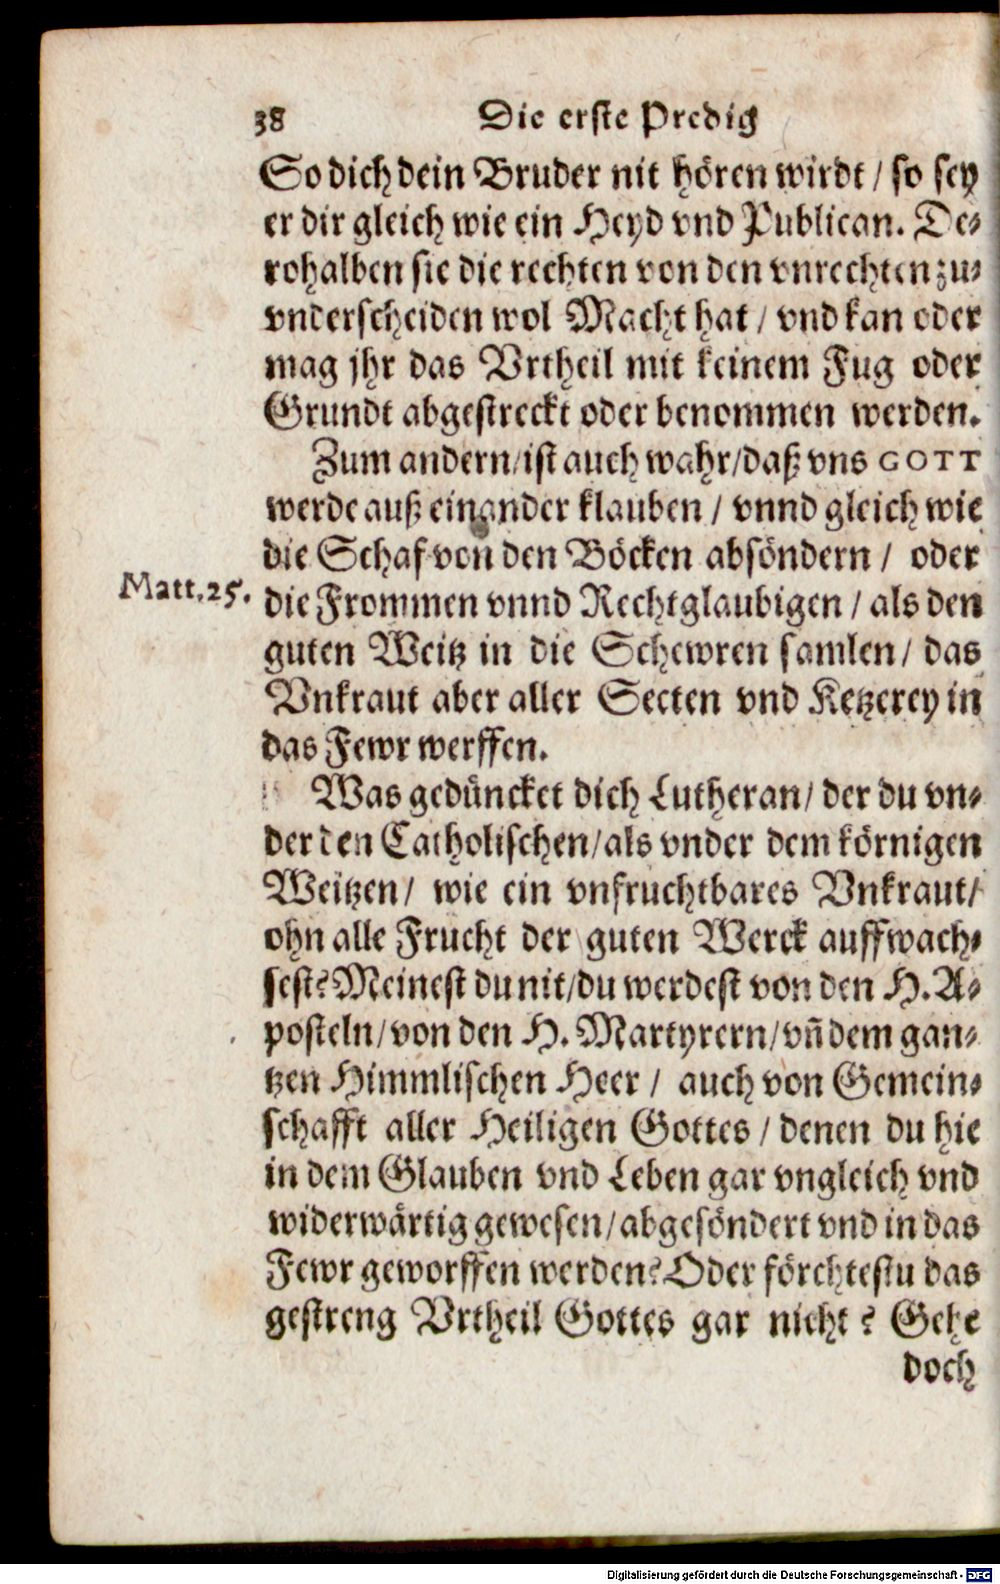 38 Die erste Predig
So dich dein Bruder nit hören wirdt / so sey
er dir gleich wie ein Heyd vnd Publican. De-
rohalben sie die rechten von den vnrechten zu-
vnderscheiden wol Macht hat / vnd kan oder
mag jhr das Vrtheil mit keinem Fug oder
Grundt abgestreckt oder benommen werden.
Zum andern / ist auch wahr / daß vns GOTT
werde auß einander klauben / vnnd gleich wie
die Schaf von den Böcken absöndern / oder
Matt. 25. die Frommen vnnd Rechtglaubigen / als den
guten Weitz in die Schewren samlen / das
Vnkraut aber aller Secten vnd Ketzerey in
das Fewr werffen.
Was gedüncket dich Lutheran / der du vn-
der den Catholischen / als vnder dem körnigen
Weitzen / wie ein vnfruchtbares Vnkraut /
ohn alle Frucht der guten Werck auffwach-
sest? Meinest du nit / du werdest von den H. A-
posteln / von den H. Martyrern / vñ dem gan-
tzen Himmlischen Heer / auch von Gemein-
schafft aller Heiligen Gottes / denen du hie
in dem Glauben vnd Leben gar vngleich vnd
widerwärtig gewesen / abgesöndert vnd in das
Fewr geworffen werden? Oder förchtestu das
gestreng Vrtheil Gottes gar nicht? Gehe
doch
Digitalisierung gefördert durch die Deutsche Forschungsgemeinschaft - DFG